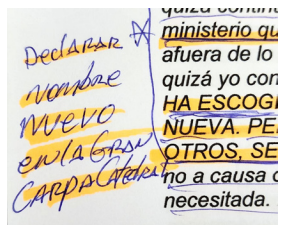 Declarar
nombre
nuevo
en la Gran
Carpa Catedral
quizá contin
ministerio qu
afuera de lo
quizá yo con
HA ESCOGI
NUEVA. PE
OTROS, SE
no a causa
necesitada.